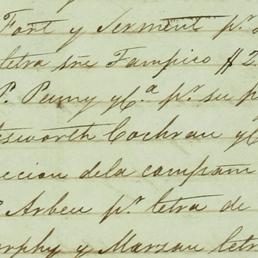 Fort y Serment pr.
letra sre Tampico $2
P. Pumy y Ca. pr. su p
sworth Cochran y C
eccion dela compam
Arbeu pr. letra de
rphy y Marzan letr